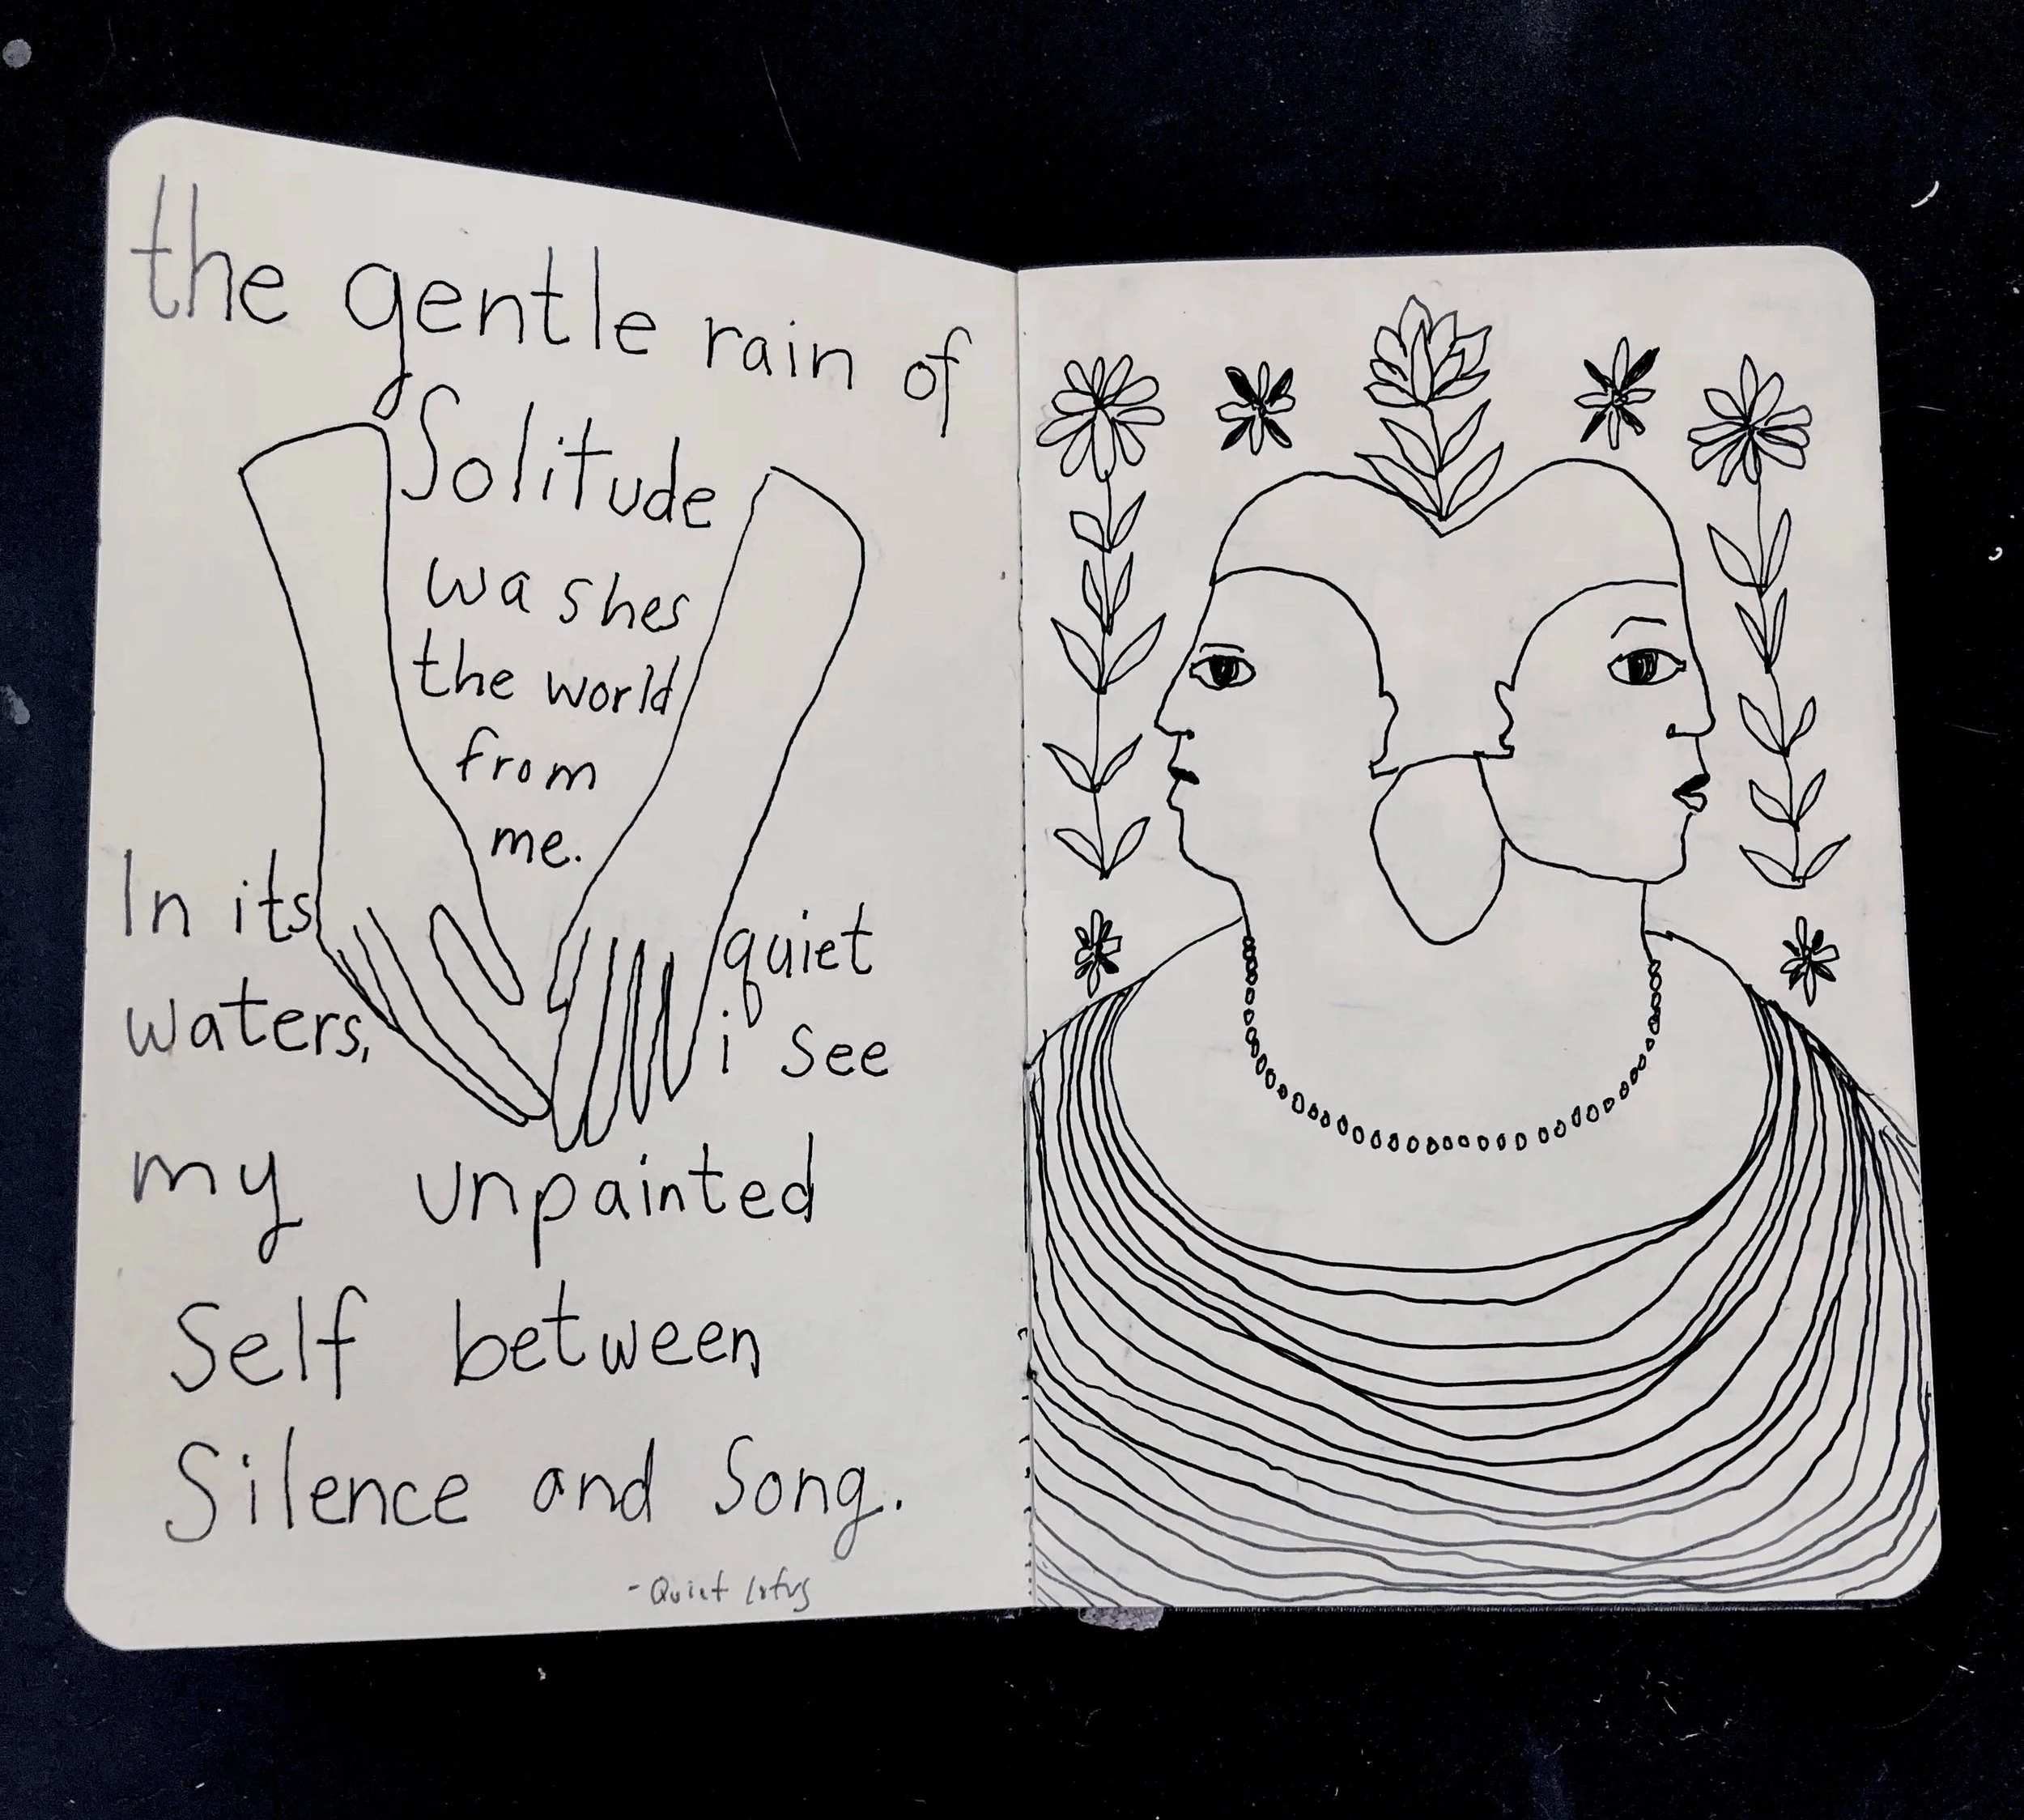 the gentle rain of
Solitude
washes
the world
from
me.
In its quiet
waters, i see
my unpainted
Self between
Silence and Song.
- Quiet Lotus